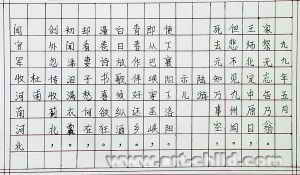 闻官军收河南河北
杜甫
剑外忽传收蓟北，
初闻涕泪满衣裳。
却看妻子愁何在，
漫卷诗书喜欲狂。
白日放歌须纵酒，
青春作伴好还乡。
即从巴峡穿巫峡，
便下襄阳向洛阳。
示儿
陆游
死去元知万事空，
但悲不见九州同。
王师北定中原日，
家祭无忘告乃翁。
九九年五月